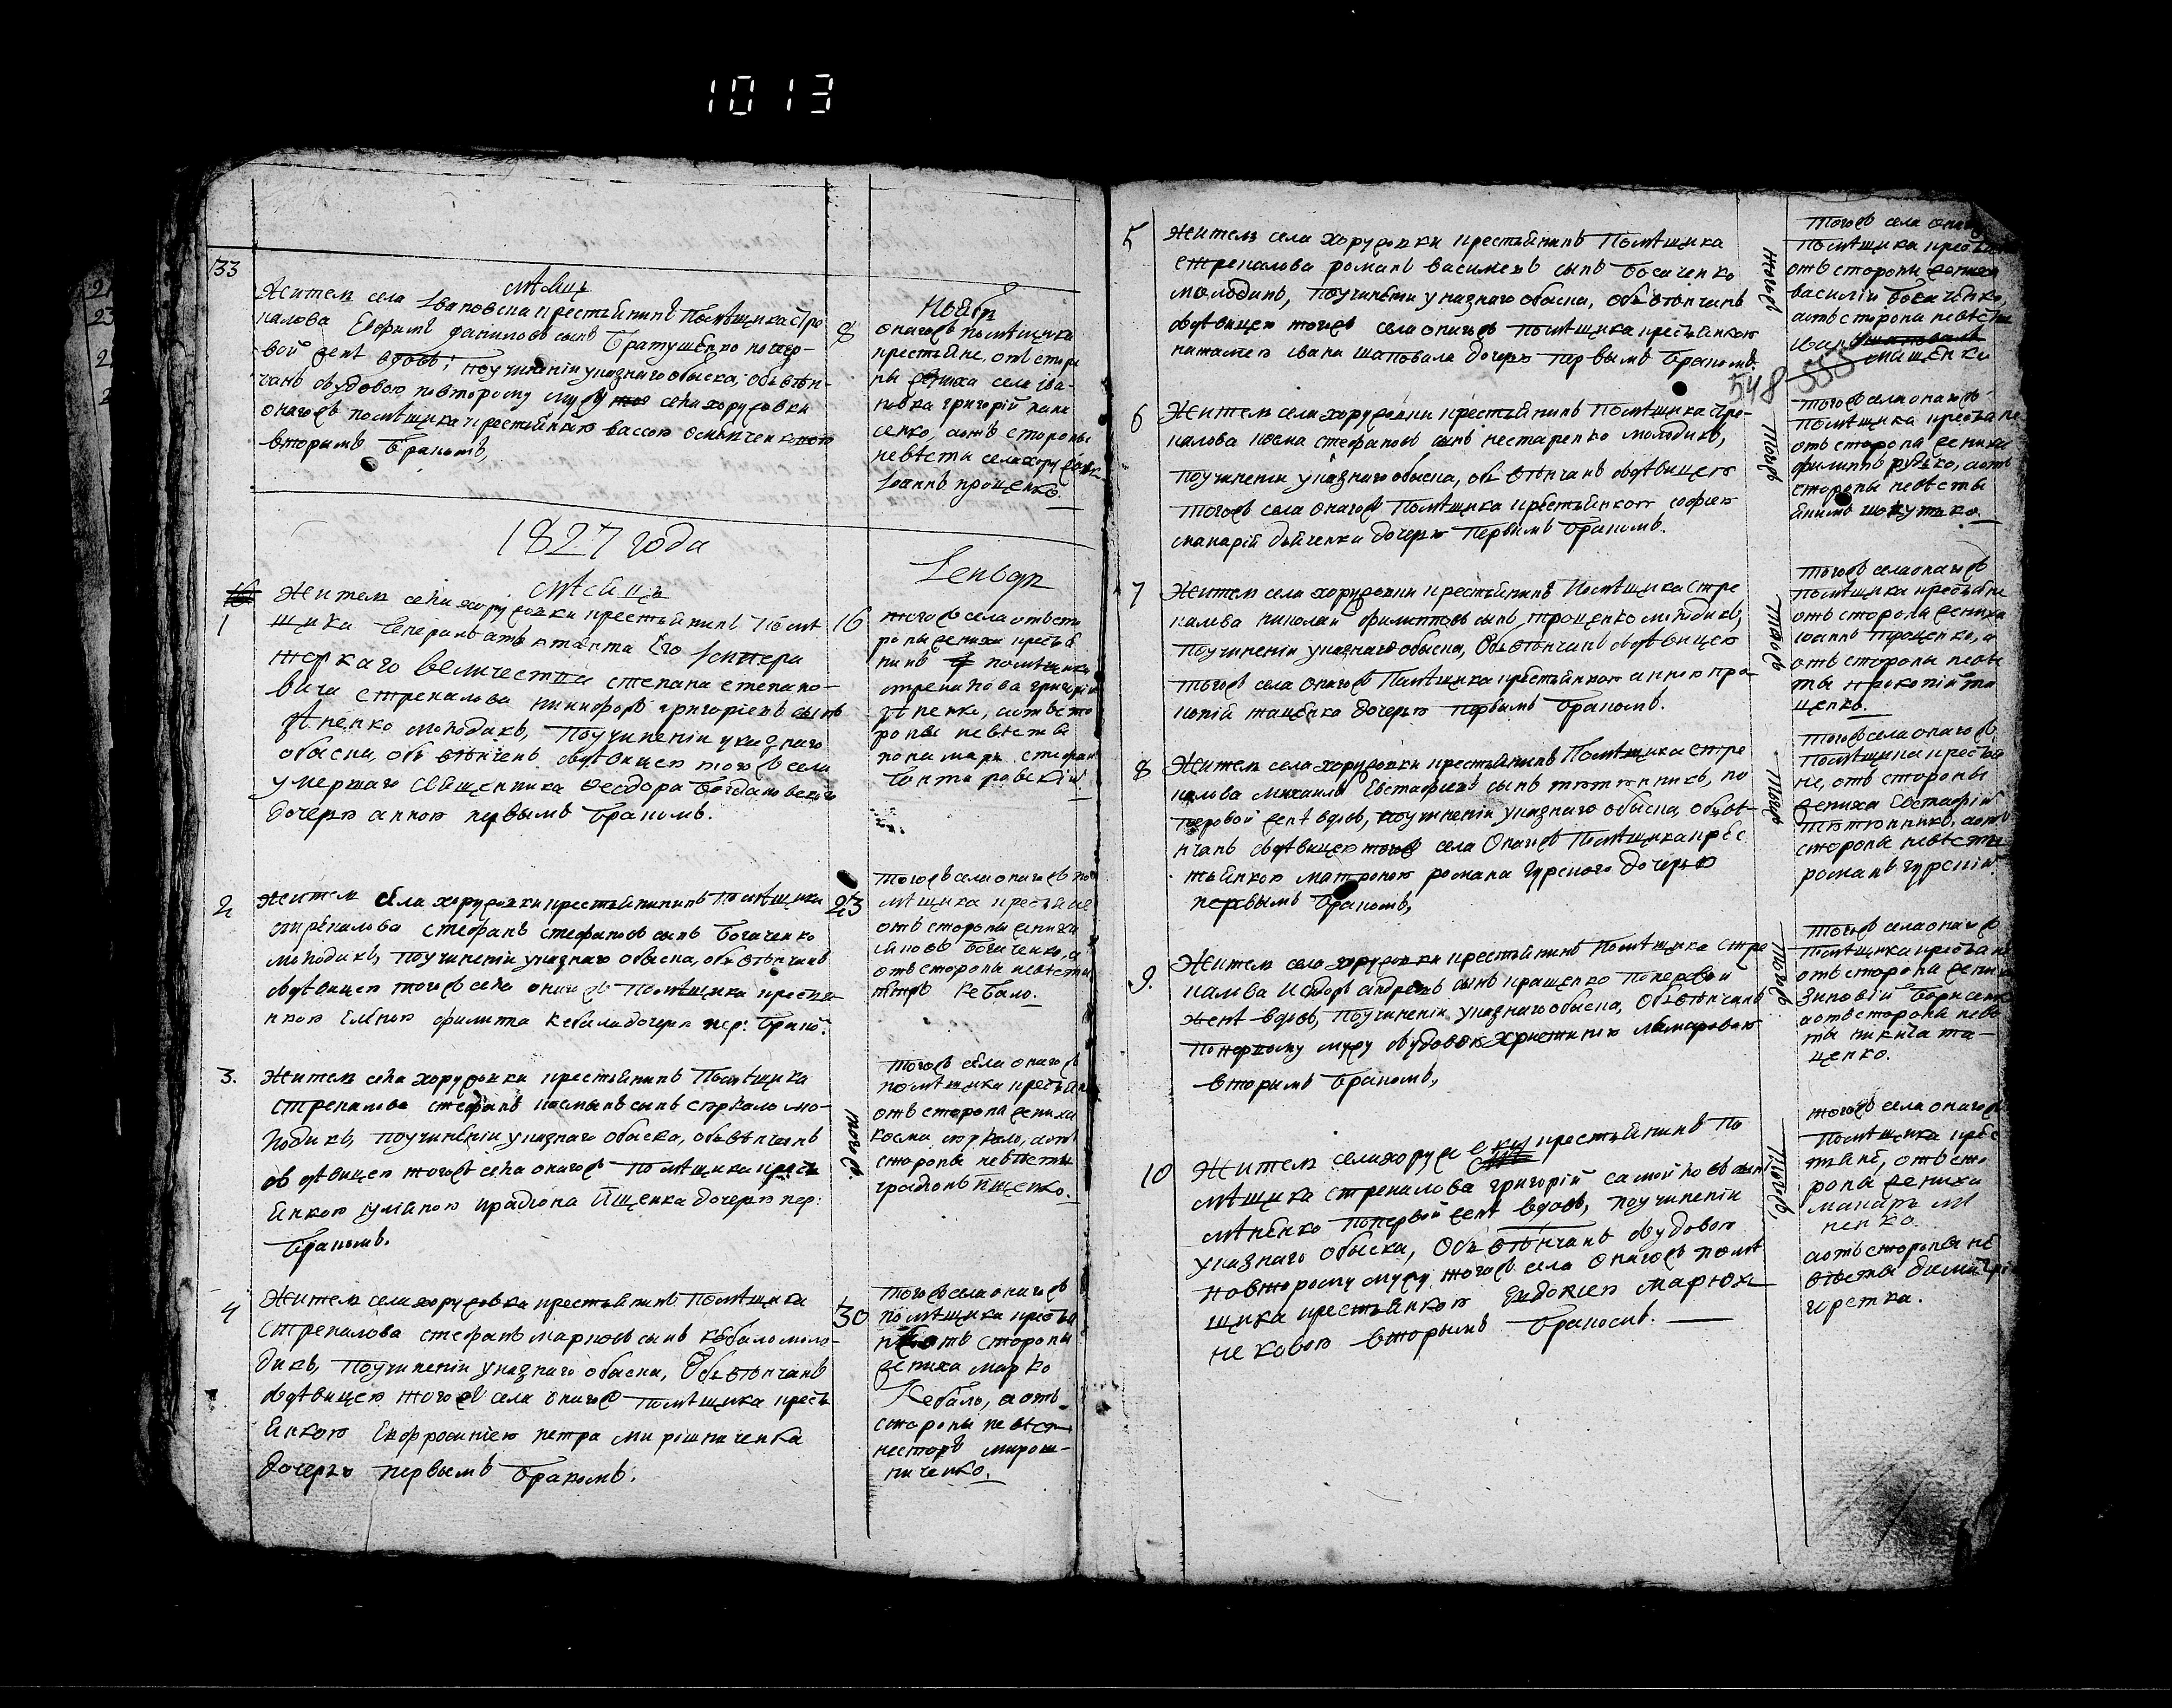 1013
33
мѣсяцъ
Ноября
Житель села Ивановки крестьянинъ Помѣщика Стре
калова Евфимъ даниловъ сынъ Братушенко попер-
вой женѣ вдовъ; поучиненіи указнаго обыска, обвѣн-
чанъ совдовою повторому мужу села хоружовки
онагожъ помѣщика крестьянкою вассою
вторымъ бракомъ,
8
онагожъ помѣщика
крестьяне, отъ сторо
ны жениха села Ива-
новка григорій пана
сенко, аотъ стороны
невѣсты села хоружовк
Іоаннъ проценко.
1827 года
мѣсяцъ
Генвар
1
Житель села хоружовки крестьянинъ помѣ
щика Генералъ атьютанта Его Імпера
торскаго величества степана степано-
вича стрекалова никифоръ григоріевъ сынъ
зѣненко молодикъ, поучиненіи указнаго
обыска, обвѣнченъ здѣвицею тогожъ села
умершаго священника Феодора Богдановскаго
дочерю анною первымъ бракомъ.
16
тогожъ села отъ сто
роны жениха кресть я
нинъ помѣщика
стрекалова григорій
зѣненко, аотъ сто
роны невѣсты
пономарь стефан
2
Житель села хоружовки крестьянинъ помѣщика
стрекалова стефанъ стефановъ сынъ Богаченко
молодикъ, поучиненіи указнаго обыска, обвѣнчанъ
здѣвицею тогожъ села онагожъ помѣщика крестья
нкою Еленою филипа кебала дочерю пер: брако:
23
тогожъ села онагожъ по
мѣщика крестьяне
отъ стороны жениха
яковъ Богаченко, а
отъ стороны невѣсты
петръ Кебало.
3.
Житель села хоружовки крестьянинъ Помѣщика
стрекалова стефанъ космынъ сынъ спркало мо-
лодикъ, поучиненіи указнаго обыска, обвѣнчанъ
здѣвицею тогожъ села онагожъ помѣщика кресть
янкою іуліяною ирадіона йщенка дочерю пер:
бракомъ.
тогожъ.
тогожъ села онагожъ
помѣщика крестьян
отъ сторона жениха
косма спркало, аотъ
стороны невѣсты
ирадіонъ йщенко.
4
Житель села хоружовка крестьянинъ Помѣщика
стрекалова стефанъ марковъ сынъ кебало моло-
дикъ, поучиненіи указнаго обыска, Обвѣнчанъ
здѣвицею тогожъ села онагожъ помѣщика кресть
янкою Евфросинією петра мирошниченка
дочерю первымъ бракомъ.
30
тогожъ села онагожъ
помѣщика крестья
не отъ стороны
жениха марко
Кебало, аотъ
стороны невѣст
несторъ мирош-
ниченко.
5
Житель села хоружовки крестьянинъ Помѣщика
стрекалова романъ василіевъ сынъ Босаченко
молодикъ, поучиненіи указнаго обыска, обвѣнчанъ
здѣвицею тогожъ села онагожъ помѣщика крестьянкою
ивана шаповала дочерю первымъ бракомъ.
тогожъ
тогожъ села онаг
помѣщика крестьян
отъ стороны жениха
василіи
аотъ сторона невѣсты
иван
548
555
6
Житель села хоружовки крестьянинъ Помѣщика Стре-
калова косма стефановъ сынъ нестаренко молодикъ,
поучиненіи указнаго обыска, обвѣнчанъ здѣвицею
тогожъ села онагожъ Помѣщика крестьянкою софією
макарій дяченка дочерю первымъ бракомъ.
тогожъ
тогожъ села онагожъ
помѣщика крестьяне
отъ сторона жениха
филипъ рудько, аотъ
стороны невѣсты
7
Житель села хоружовки крестьянинъ Помѣщика Стре
калова николай филиповъ сынъ троценко молодикъ,
поучиненіи указнаго обыска, Обвѣнчанъ здѣвицею
тогожъ села онагожъ Помѣщика крестьянкою анною про
копій таценка дочерю первымъ бракомъ.
тогожъ
тогожъ села онагожъ
помѣщика крестьяне
отъ сторона жениха
іоанъ троценко, а
отъ стороны невѣс
ты прокопій та
ценко.
8
Житель села хоружовки крестьянинъ Помѣщика Стре
калова михаилъ Евстафіевъ сынъ тютюнникъ, по
первой женѣ вдовъ, поучиненіи указнаго обыска, обвѣ-
нчанъ здѣвицею тогожъ села Онагожъ Помѣщика крес
тьянкою матроною романа гурского дочерью
первымъ бракомъ,
тогожъ
тогожъ села онагожъ
помѣщика крестья
не, отъ стороны
жениха Евстафій
тютюнникъ, аотъ
стороны невѣсты
романъ гурскій.
9.
Житель села хоружовки крестьянинъ Помѣщика Стре
калова Исидоръ андреевъ сынъ иращенко поперво и
женѣ вдовъ, поучиненіи указнаго обыска, Обвѣнчанъ
повторому мужу звдовою христиною
вторымъ бракомъ,
тогожъ
тогожъ села онагожъ
помѣщика крестьяне
отъ сторона жениха
Зиновій борисенко
аотъ сторона невѣс
ты никита та-
ценко.
10
Житель села хоруже вки крестьянинъ По
мѣщика стрекалова григорій самойловъ сынъ
мѣненко попервой женѣ вдовъ, поучиненіи
указнаго обыска, Обвѣнчанъ звдовою
повторому мужу тогожъ села онагожъ помѣ
щика крестьянкою Евдокією марюх
не ковою вторымъ бракомъ.
тогожъ,
тогожъ села онагожъ
Помѣщика крес
тьяне, отъ сто
роны жениха
макаръ мѣ
ненко.
аотъ стороны не
вѣсты димитрі
горетка.